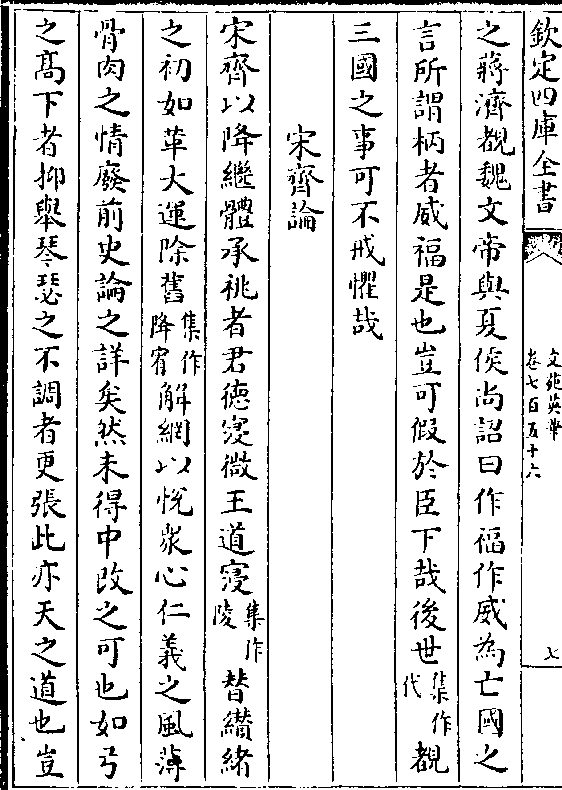 欽定四庫全書
文苑英華
卷七百五十六
七
之蔣濟覩魏文帝與夏侯尚詔曰作福作威為亡國之
言所謂柄者威福是也豈可假於臣下哉後世集作代覩
三國之事可不戒懼哉
宋齊論
宋齊以降繼體承祧者君德寖微王道寖集作陵替纘緒
之初如革大運除舊集作降宥解網以悅衆心仁義之風薄
骨肉之情廢前史論之詳矣然未得中改之可也如弓
之髙下者抑舉琴瑟之不調者更張此亦天之道也豈